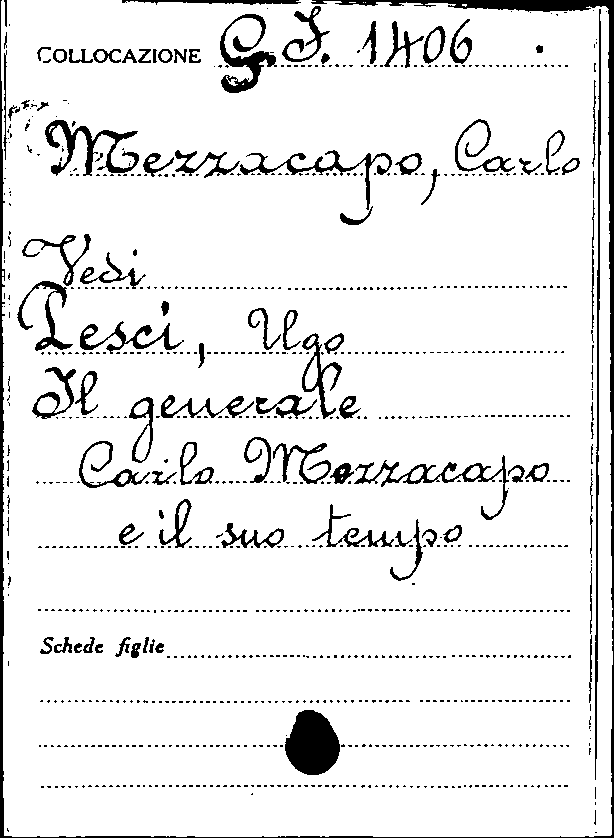 COLLOCAZIONE G.I. 1406
Mezzacapo, Carlo
Vedi
Pesci, Ugo
Il generale
Carlo Mezzacapo
e il suo tempo
Schede figlie